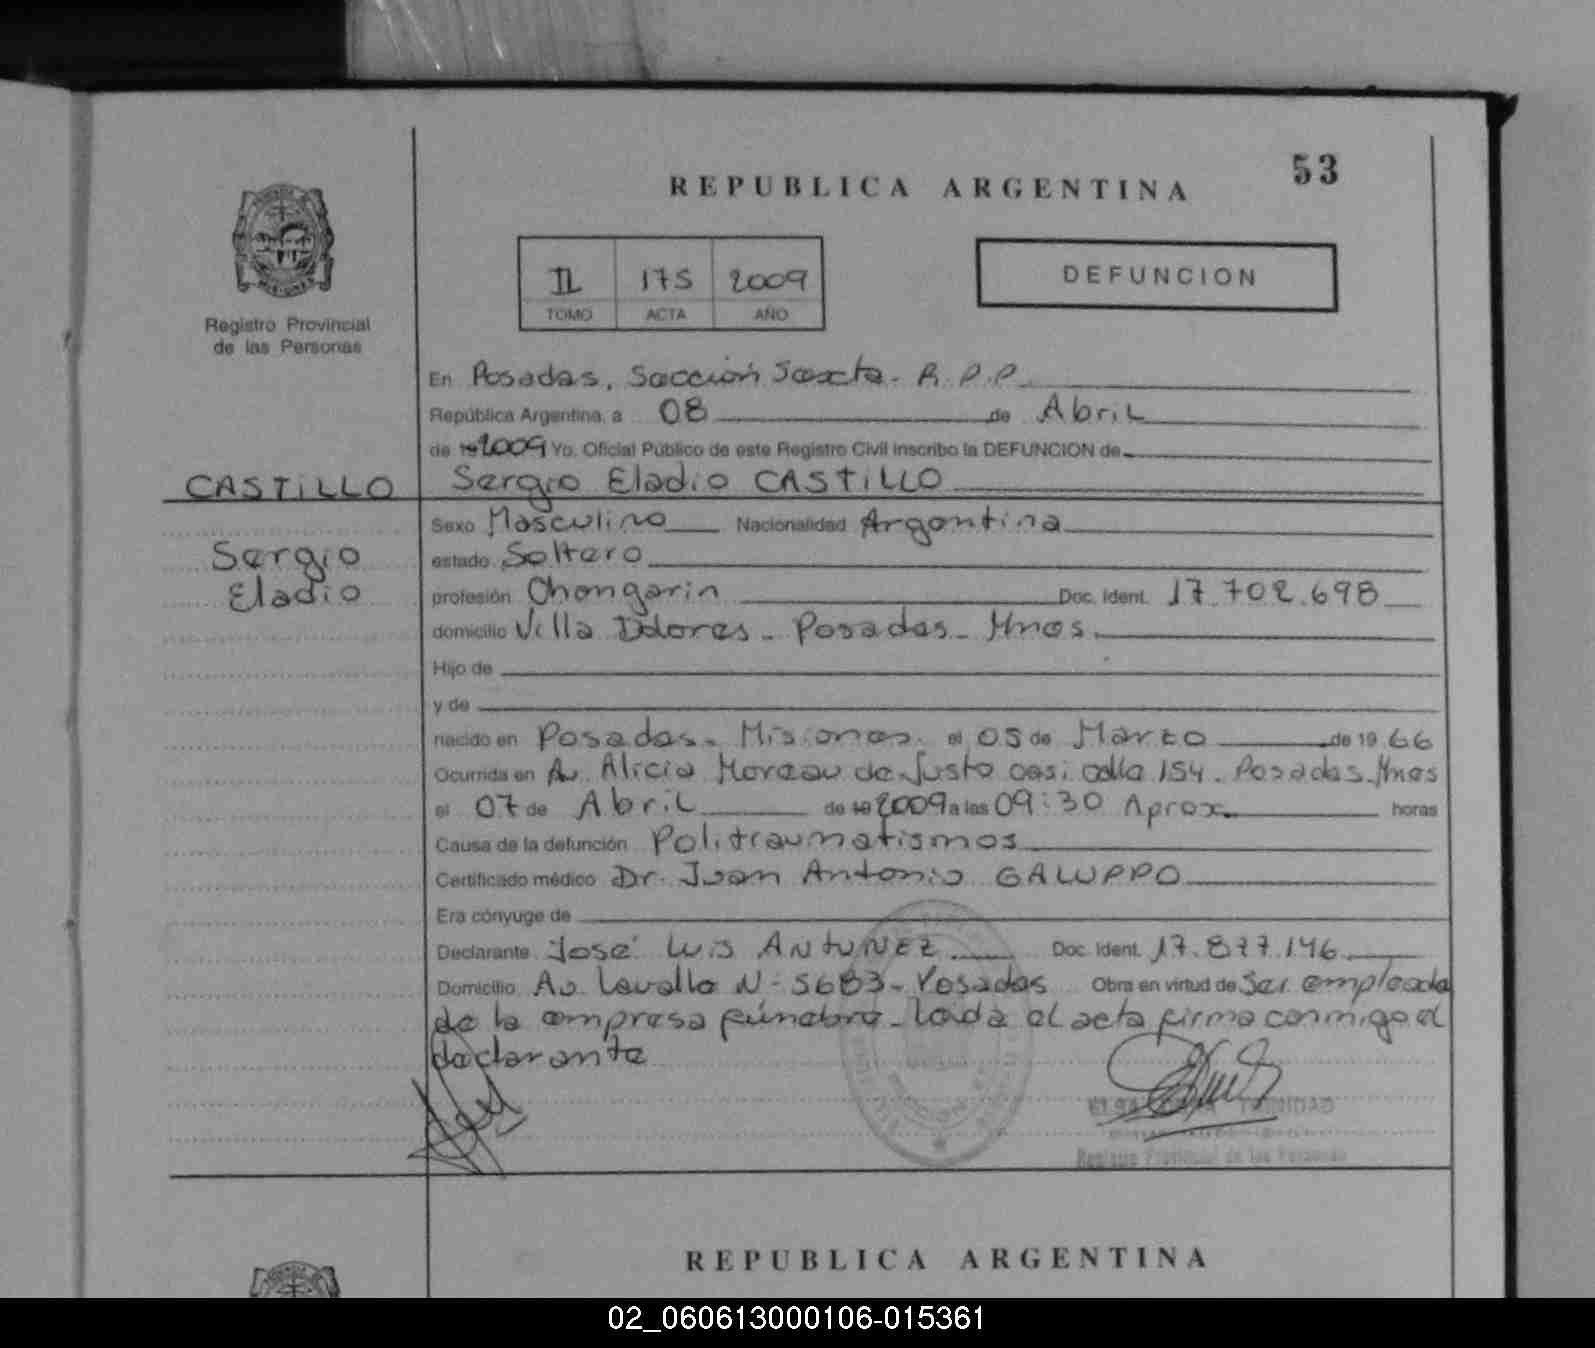 53
REPUBLICA ARGENTINA
IL 175 2009
TOMO ACTA AÑO
DEFUNCION
Registro Provincial
de las Personas
En Posadas, Sección Sexta. R.P.P.
República Argentina, a 08 de Abril
de 19 2009 Yo, Oficial Público de este Registro Civil inscribo la DEFUNCION de
CASTILLO Sergio Eladio CASTILLO
Sexo Masculino Nacionalidad Argentina
Sergio estado Soltero
Eladio profesión Chongarin Doc. Ident. 17.702.698
domicilio Villa Dolores - Posadas - Mnes.
Hijo de
y de
nacido en Posadas - Misiones. el 05 de Marzo de 19 66
Ocurrida en Av. Alicia Moreau de Justo casi calle 154. Posadas. Mnes
el 07 de Abril de 19 2009 a las 09:30 Aprox. horas
Causa de la defunción Politraumatismos
Certificado médico Dr. Juan Antonio GALUPPO
Era cónyuge de
Declarante José Luis ANTUNEZ Doc. Ident. 17.877.146
Domicilio Av. Lavalle N - 5683 - Posadas Obra en virtud de Ser empleado
de la empresa fúnebre - Leida el acta firma conmigo el
declarante
TRINIDAD
Registro Provincial de las Personas
REPUBLICA ARGENTINA
02_060613000106-015361